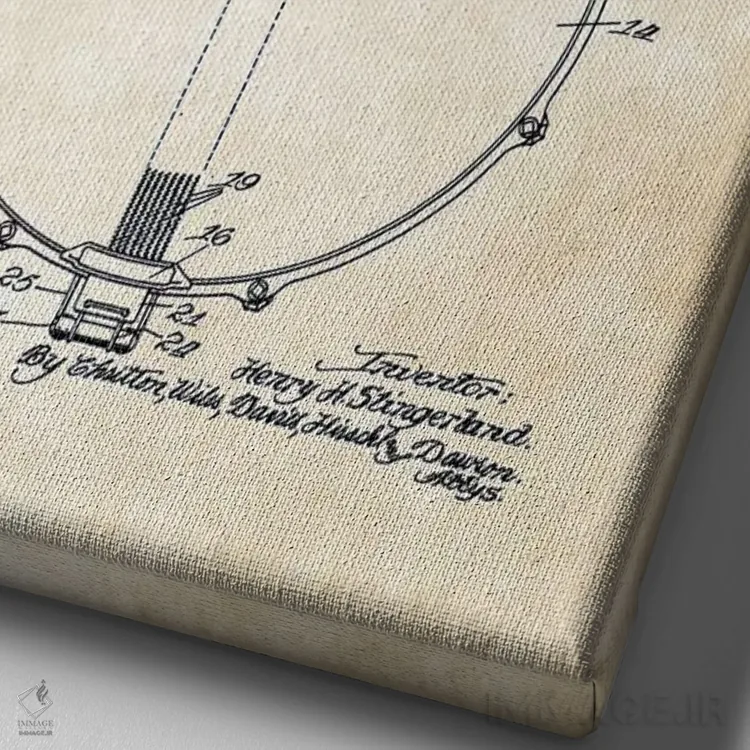 14
19
16
25
21
24
Inventor:
Henry H Slingerland.
By Chritton, Wiles, Davies, Hirschl, Dawson.
Attys.
IMMAGE
IMMAGE.IR
IMMAGE.IR